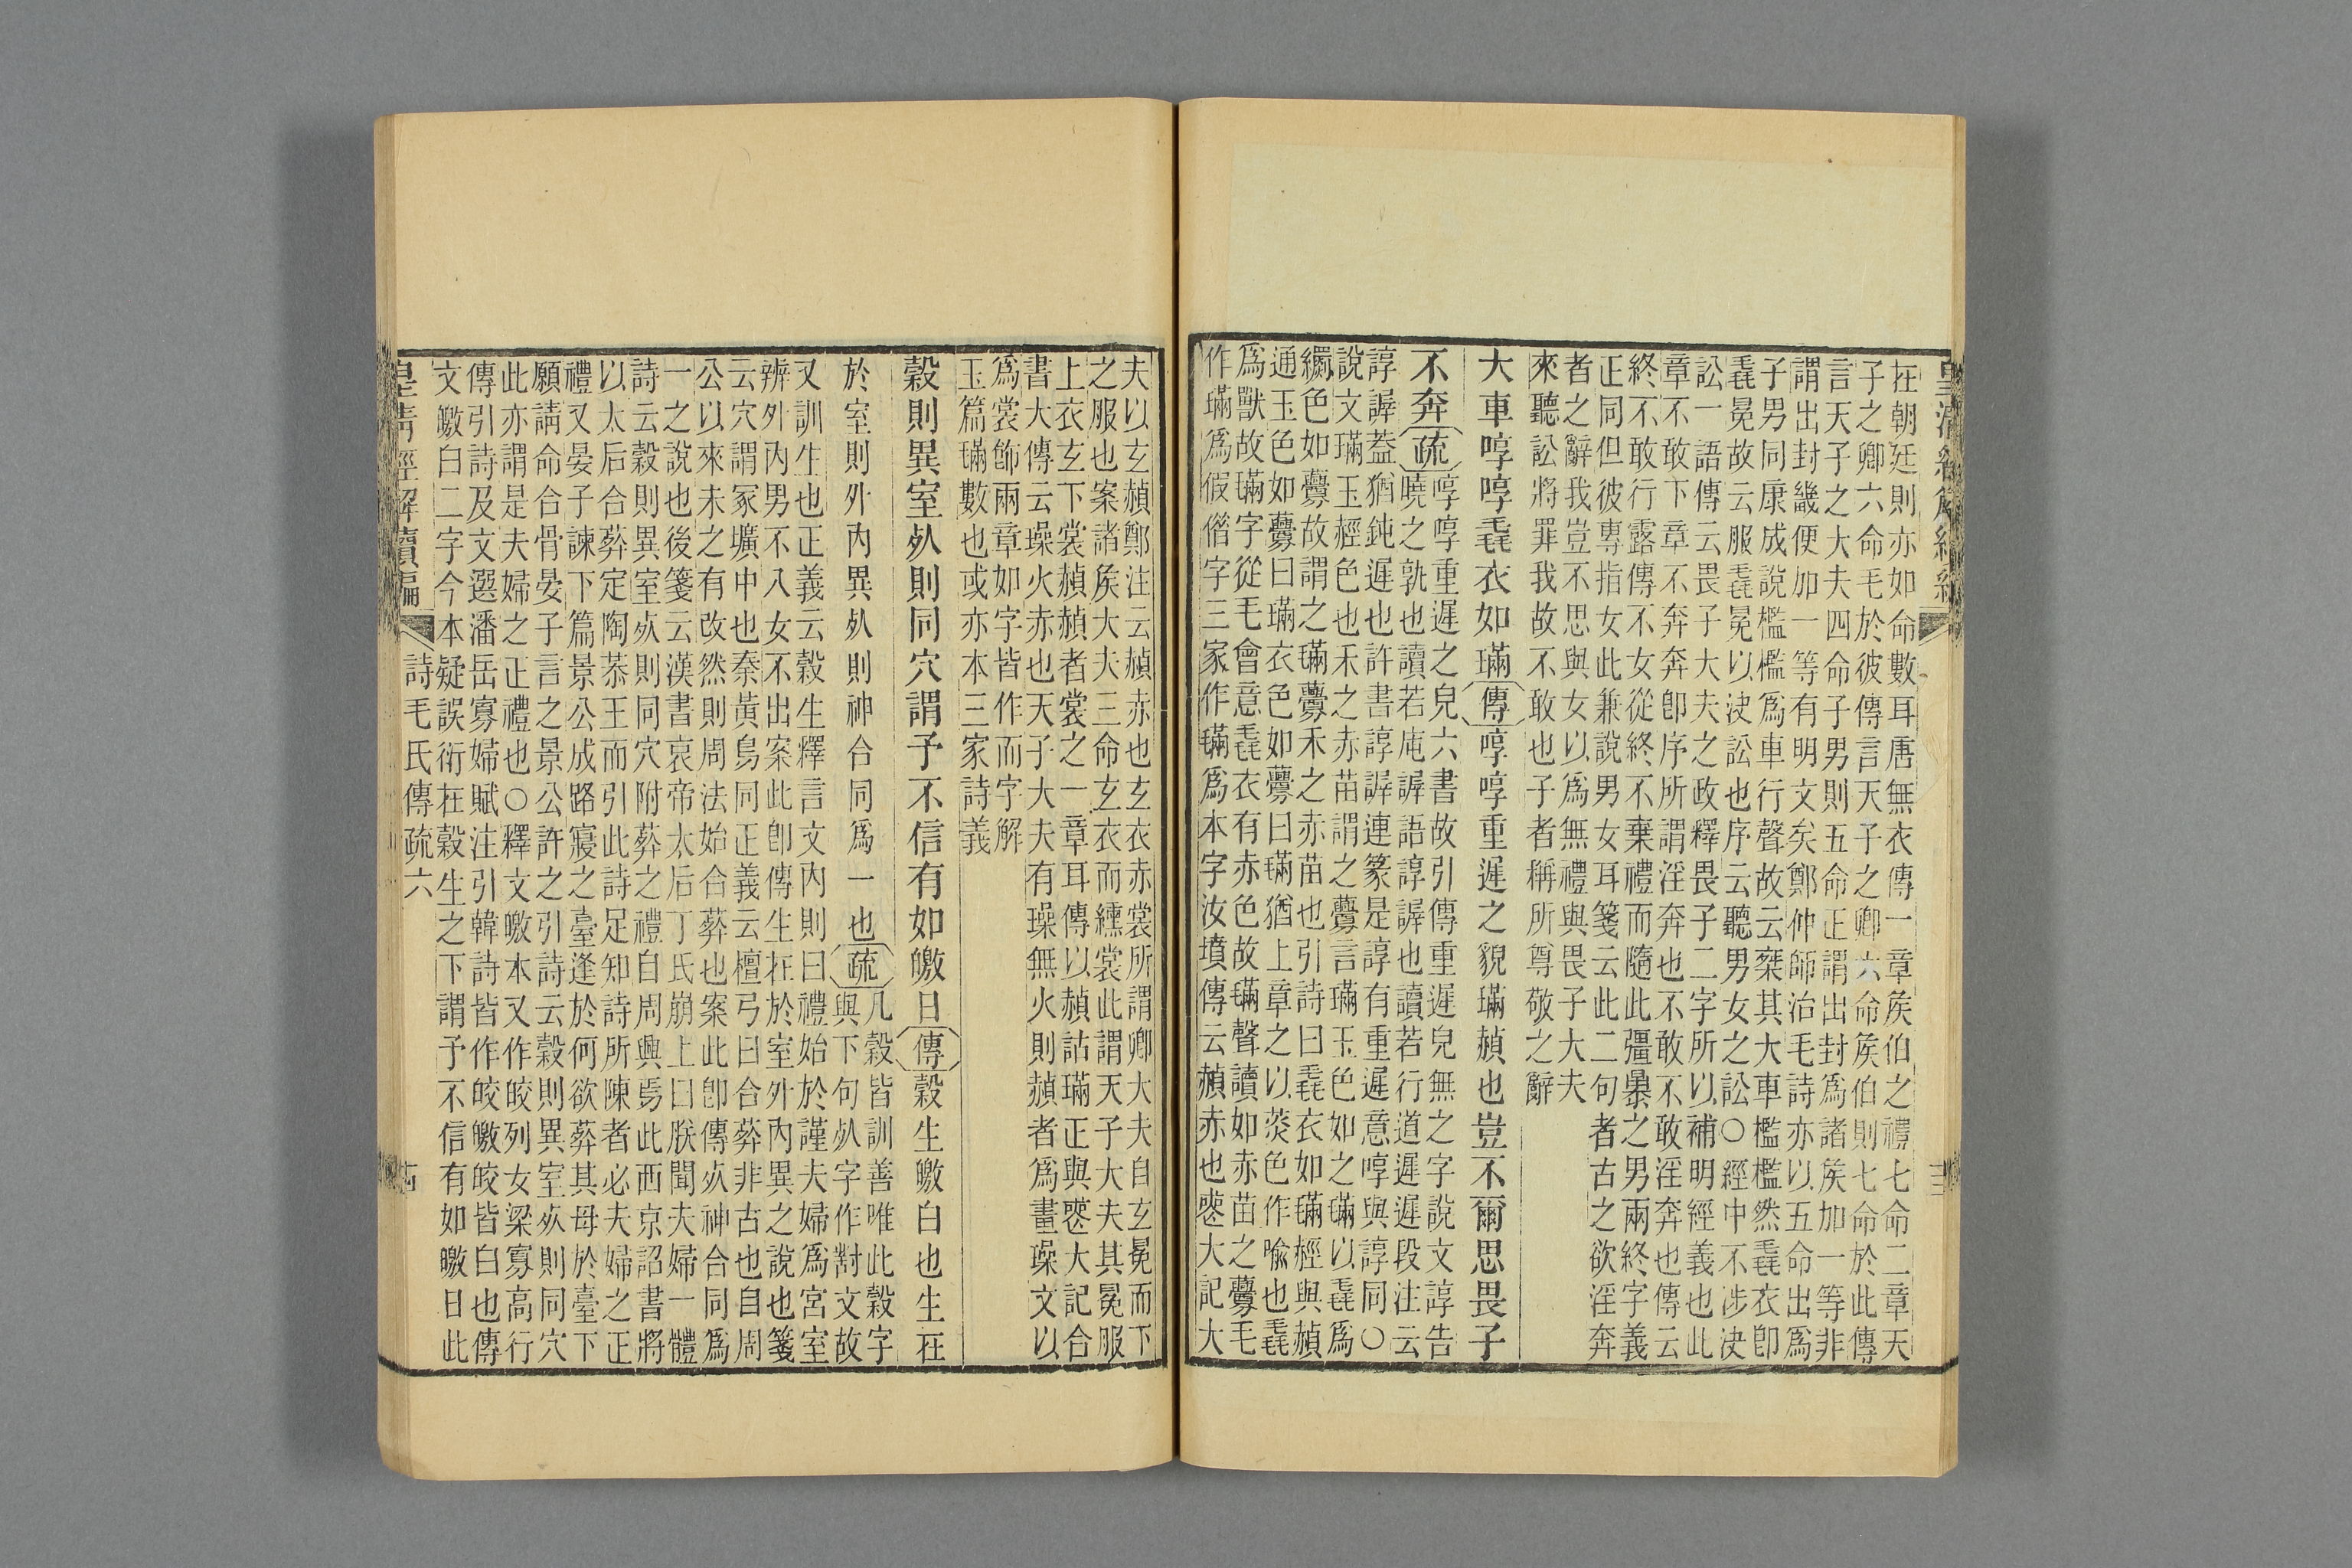 在朝廷則亦如命數耳唐無衣傳一章矦伯之禮七命二章天
子之卿六命毛於彼傳言天子之卿六命矦伯則七命於此傳
言天子之大夫四命子男則五命正謂出封爲諸矦加一等非
謂出封畿便加一等有明文矣鄭仲師治毛詩亦以五命出爲
子男同康成說檻檻爲車行聲故云桀其大車檻檻然毳衣卽
毳冕故云服毳冕以決訟也序云聽男女之訟○經中不涉決
訟一語傳云畏子大夫之政釋畏子二字所以補明經義也此
章不敢下章不奔奔卽序所謂淫奔也不敢不敢淫奔也傳云
終不敢行露傳不女從終不棄禮而隨此彊暴之男兩終字義
正同但彼專指女此兼說男女耳箋云此二句者古之欲淫奔
者之辭我豈不思與女以爲無禮與畏子大夫
來聽訟將罪我故不敢也子者稱所尊敬之辭
大車啍啍毳衣如璊傳啍啍重遲之貌璊赬也豈不爾思畏子
不奔疏啍啍重遲之皃六書故引傳重遲皃無之字說文諄告
曉之孰也讀若庉諢語諄諢也讀若行道遲遲段注云
諄諢葢猶鈍遲也許書諄諢連篆是諄有重遲意啍與諄同○
說文璊玉經色也禾之赤苗謂之虋言璊玉色如之璊以毳爲
繝色如虋故謂之璊虋禾之赤苗也引詩曰毳衣如璊經與赬
通玉色如虋曰璊衣色如虋曰璊猶上章之以菼色作喩也毳
爲獸故璊字從毛會意毳衣有赤色故璊聲讀如赤苗之虋毛
作璊爲假借字三家作璊爲本字汝墳傳云赬赤也喪大記大
夫以玄赬鄭注云赬赤也玄衣赤裳所謂卿大夫自玄冕而下
之服也案諸矦大夫三命玄衣而纁裳此謂天子大夫其冕服
上衣玄下裳赬赬者裳之一章耳傳以赬詁璊正與喪大記合
書大傳云璪火赤也天子大夫有璪無火則赬者爲畫璪文以
爲裳飾兩章如字皆作而字解
玉篇璊數也或亦本三家詩義
榖則異室死則同穴謂予不信有如皦日傳榖生皦白也生在
於室則外內異死則神合同爲一也疏凡榖皆訓善唯此榖字
與下句死字作對文故
又訓生也正義云榖生釋言文內則曰禮始於謹夫婦爲宮室
辨外內男不入女不出案此卽傳生在於室外內異之說也箋
云穴謂冢壙中也秦黃鳥同正義云檀弓曰合葬非古也自周
公以來未之有改然則周法始合葬也案此卽傳死神合同爲
一之說也後箋云漢書哀帝太后丁氏崩上曰朕聞夫婦一體
詩云榖則異室死則同穴附葬之禮自周興焉此西京詔書將
以太后合葬定陶恭王而引此詩足知詩所陳者必夫婦之正
禮又晏子諫下篇景公成路寢之臺逢於何欲葬其母於臺下
願請命合骨晏子言之景公許之引詩云榖則異室死則同穴
此亦謂是夫婦之正禮也○釋文皦本又作皎列女梁寡高行
傳引詩及文選潘岳寡婦賦注引韓詩皆作皎皦皎皆白也傳
文皦白二字今本疑誤衍在榖生之下謂予不信有如皦日此
皇清經解續編
詩毛氏傳疏六